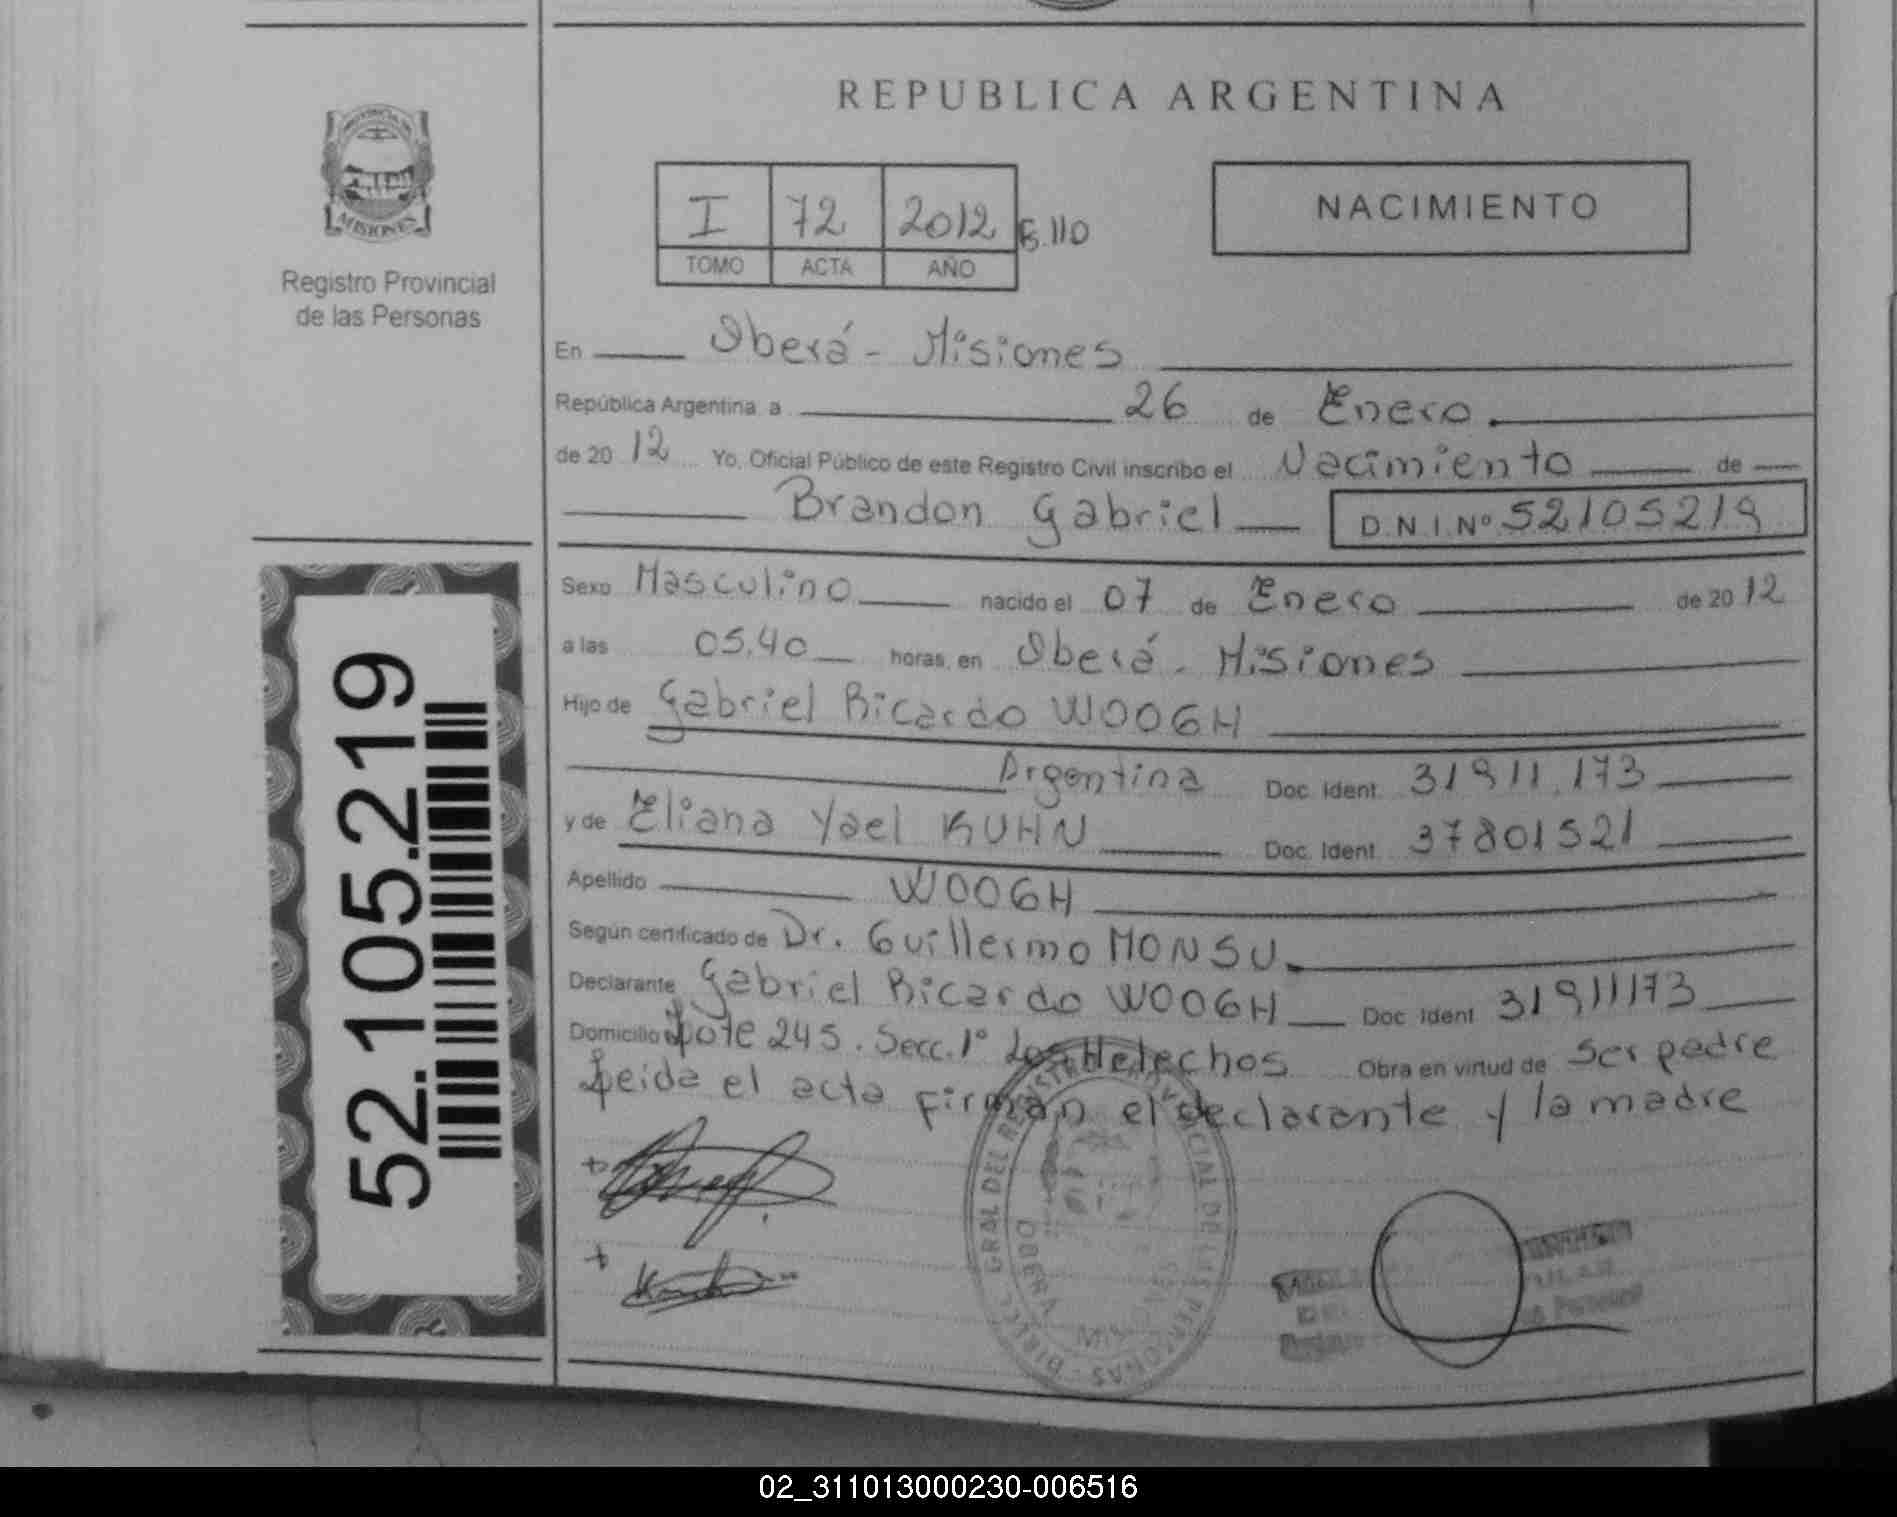 REPUBLICA ARGENTINA
PROVINCIA DE
MISIONES
Registro Provincial
de las Personas
I 72 2012 F.110
TOMO ACTA AÑO
NACIMIENTO
En Oberá - Misiones
República Argentina, a 26 de Enero
de 2012 Yo, Oficial Público de este Registro Civil inscribo el Nacimiento de
Brandon Gabriel D.N.I. Nº 52105219
Sexo Masculino nacido el 07 de Enero de 2012
a las 05.40 horas, en Oberá - Misiones
Hijo de Gabriel Ricardo WOOGH
Argentina Doc. Ident. 31911.173
y de Eliana Yael KUHN Doc. Ident. 37801521
Apellido WOOGH
Según certificado de Dr. Guillermo MONSU.
Declarante Gabriel Ricardo WOOGH Doc. Ident. 31911173
Domicilio Lote 245. Secc. 1º Los Helechos Obra en virtud de Ser padre
Leida el acta Firman el declarante y la madre
DIREC. GRAL DEL REGISTRO PROVINCIAL DE LAS PERSONAS
OBERA MISIONES
52.105.219
02_311013000230-006516